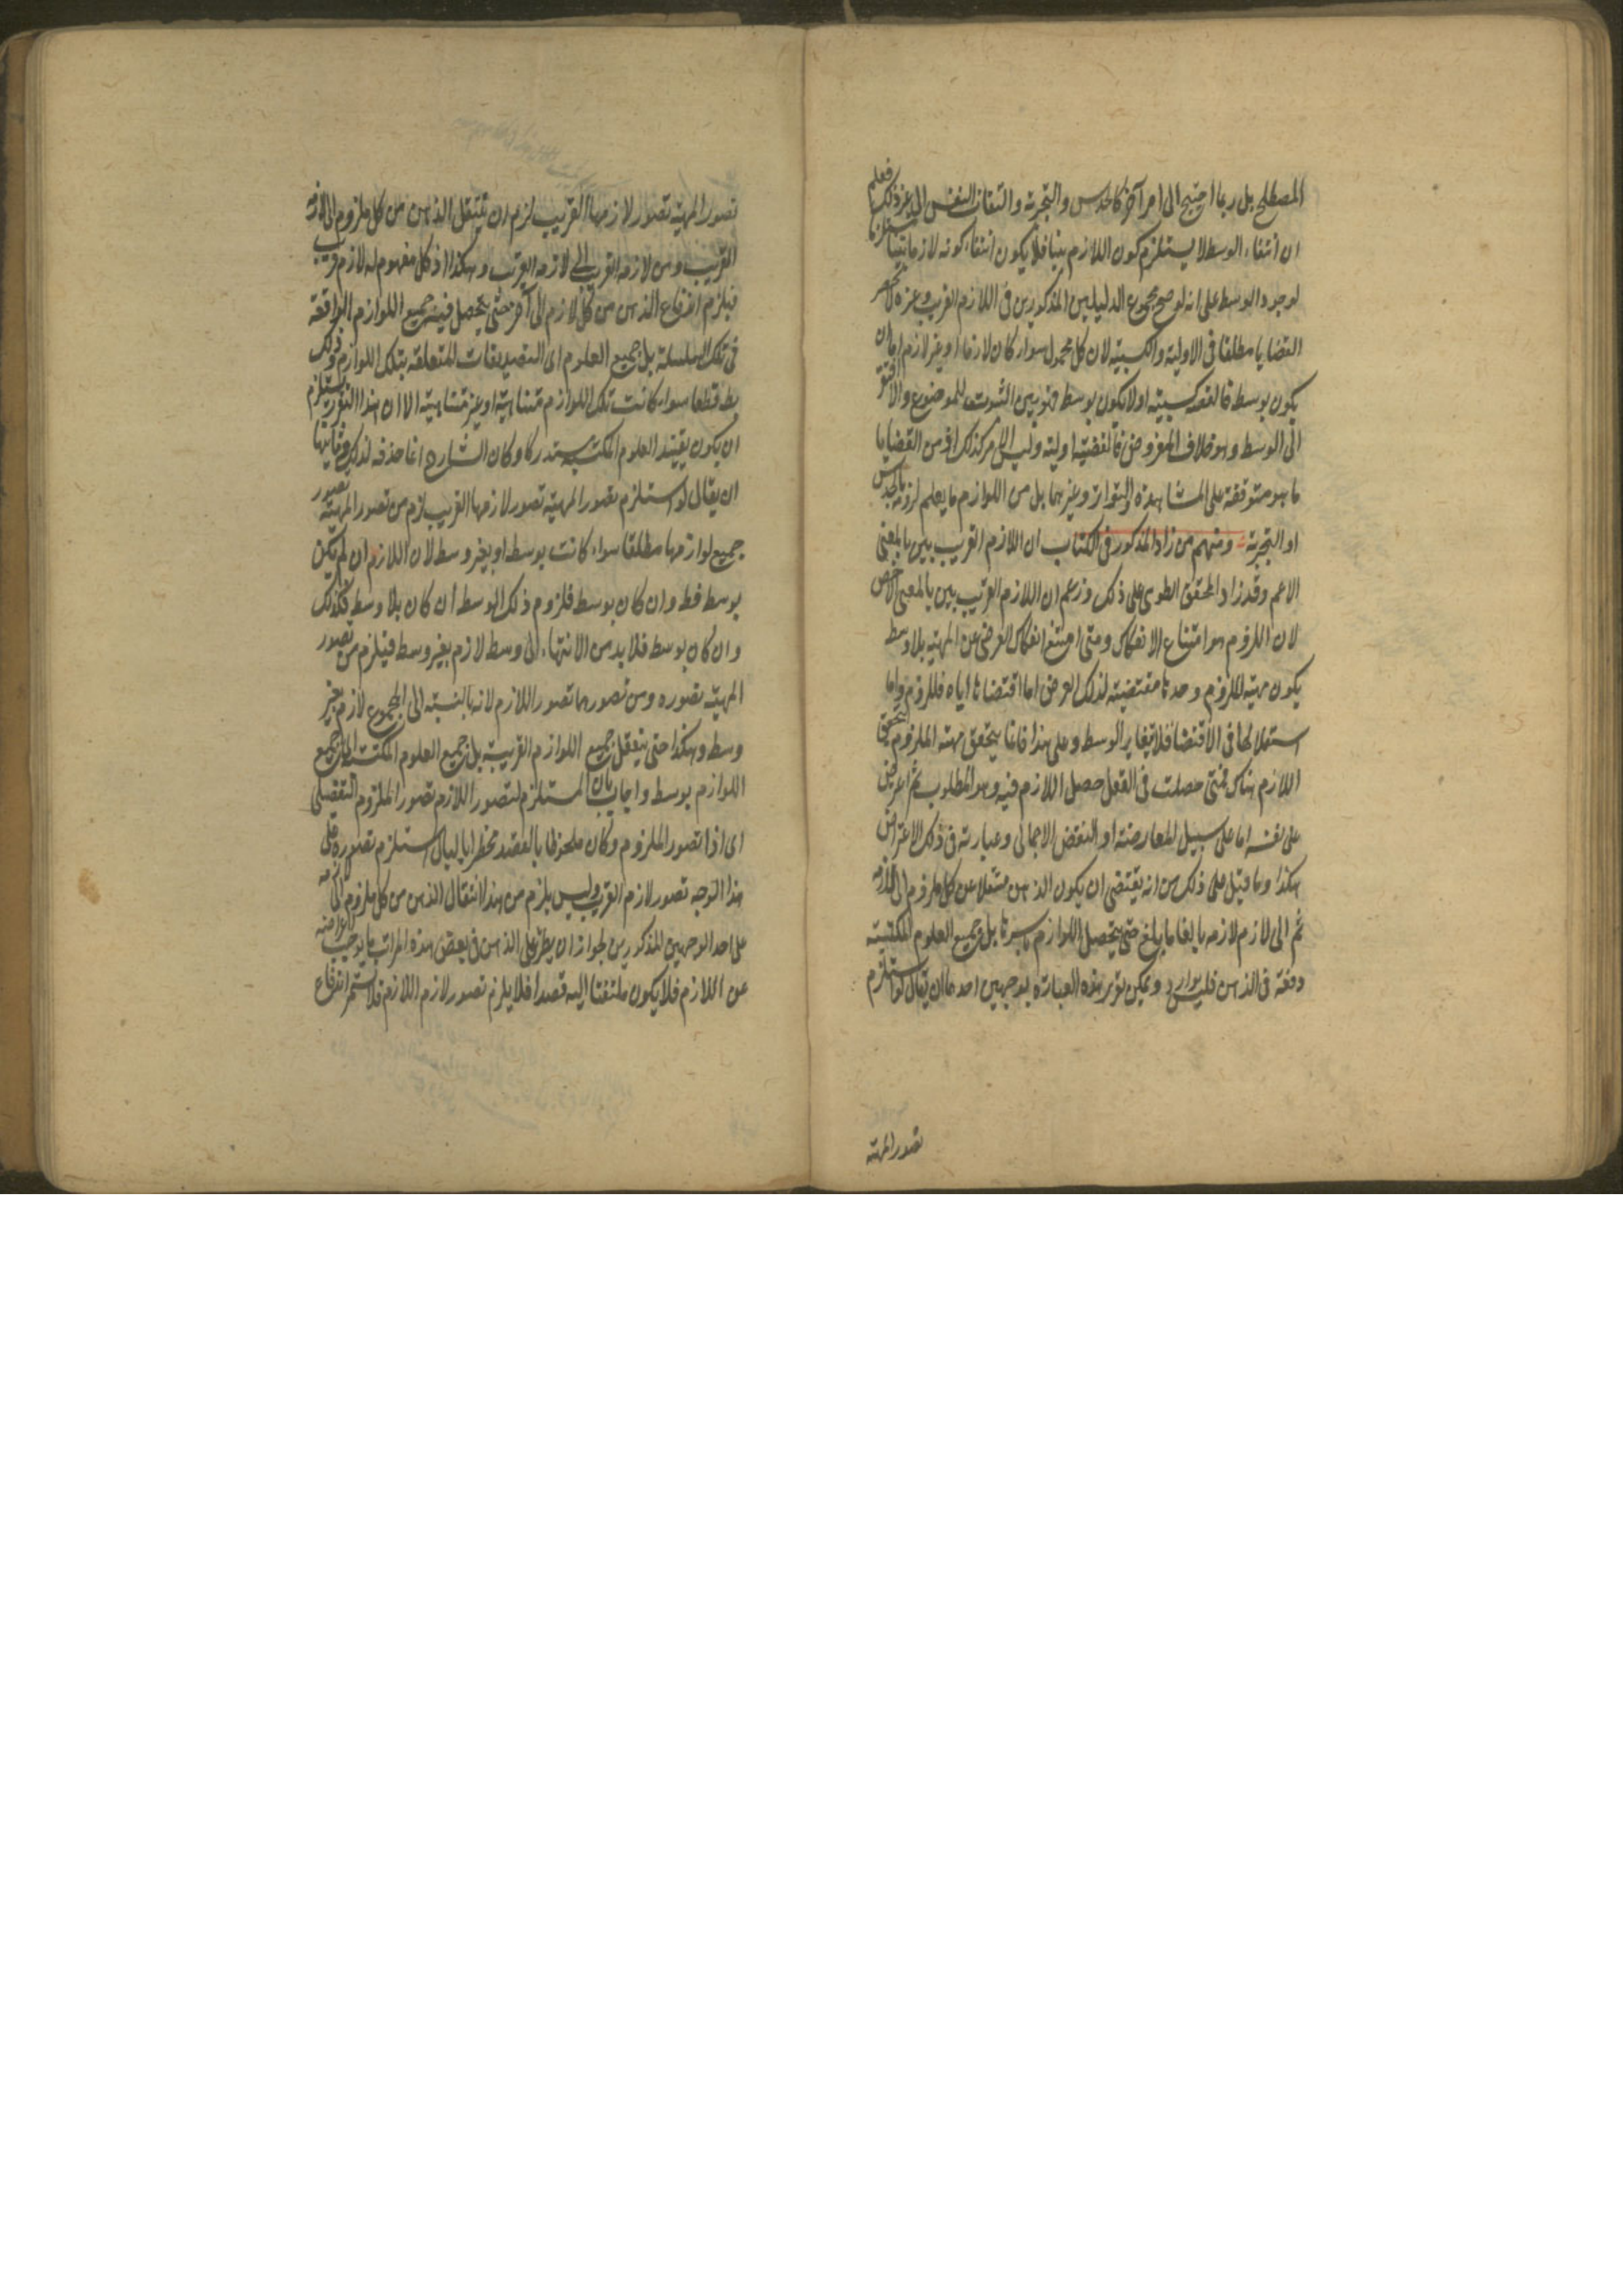 المصطلح بل ربما احتيج الى امر آخر كالحدس والتجربة والتفات النفس الى غير ذلك فعلم
ان انتفاء الوسط لا يستلزم كون اللازم بينا فلا يكون انتفاء كونه لازما بينا مستلزما
لوجود الوسط على انه لو صح مجموع الدليلين المذكورين في اللازم القريب وغيره لانحصر
القضايا مطلقا في الاولية والكسبية لان كل محمول سواء كان لازما او غير لازم اما ان
يكون بوسط فالقضية كسبية او لا يكون بوسط فهو بين الثبوت للموضوع والا افتقر
الى الوسط وهو خلاف المفروض فالقضية اولية وليس الامر كذلك اذ من القضايا
ما هو متوقفة على المشاهدة والتواتر وغيرهما بل من اللوازم ما يعلم لزومه بالحدس
او التجربة ومنهم من زاد المذكور في الكتاب ان اللازم القريب بين بالمعنى
الاعم وقد زاد المحقق الطوسي على ذلك وزعم ان اللازم القريب بين بالمعنى الاخص
لان اللزوم هو امتناع الانفكاك ومتى امتنع انفكاك العرض عن المهية بلا وسط
يكون مهية الملزوم وحدها مقتضية لذلك العرض اما اقتضائها اياه فللزوم واما
استقلالها في الاقتضاء فلانتفاء الوسط وعلى هذا فاينما يتحقق مهية الملزوم يتحقق
اللازم هناك فمتى حصلت في العقل حصل اللازم فيه وهو المطلوب ثم اعترض
على نفسه اما على سبيل المعارضة او النقض الاجمالي وعبارته في ذلك الاعتراض
هكذا وما قيل على ذلك من انه يقتضي ان يكون الذهن منتقلا عن كل ملزوم الى لازمه
ثم الى لازم لازمه بالغا ما بلغ حتى يتحصل اللوازم باسرها بل جميع العلوم المكتسبة
دفعة في الذهن فليس بوارد ويمكن توجيه هذه العبارة بوجهين احدهما ان يقال لو استلزم
تصور المهية
تصور المهية تصور لازمها القريب لزم ان ينتقل الذهن من كل ملزوم الى لازمه
القريب ومن لازمه القريب الى لازمه القريب وهكذا اذ كل مفهوم له لازم قريب
فيلزم اندفاع الذهن من كل لازم الى آخر حتى يحصل فيه جميع اللوازم الواقعة
في تلك السلسلة بل جميع العلوم اي التصديقات المتعلقة بتلك اللوازم وذلك
بط قطعا سواء كانت تلك اللوازم متناهية او غير متناهية الا ان هذا التقرير يستلزم
ان يكون تقييد العلوم بالمكتسبة مستدركا وكان الشارح انما حذفه لذلك وثانيهما
ان يقال لو استلزم تصور المهية تصور لازمها القريب لزم من تصور المهية تصور
جميع لوازمها مطلقا سواء كانت بوسط او بغير وسط لان اللازم ان لم يكن
بوسط فظ وان كان بوسط فلزوم ذلك الوسط ان كان بلا وسط فكذلك
وان كان بوسط فلا بد من الانتهاء الى وسط لازم بغير وسط فيلزم من تصور
المهية تصوره ومن تصورهما تصور اللازم لانه بالنسبة الى المجموع لازم بغير
وسط وهكذا حتى يتعقل جميع اللوازم القريبة بل جميع العلوم المكتسبة اي جميع
اللوازم بوسط واجاب بان المستلزم لتصور اللازم تصور الملزوم التفصيلي
اي اذا تصور الملزوم وكان ملحوظا بالقصد مخطرا بالبال استلزم تصوره على
هذا الوجه تصور لازم القريب وليس يلزم من هذا انتقال الذهن من كل ملزوم الى لازمه
على احد الوجهين المذكورين لجواز ان يطرأ على الذهن في بعض هذه المراتب ما يوجب اعراضه
عن اللازم فلا يكون ملتفتا اليه قصدا فلا يلزم تصور لازم اللازم فلا يستمر اندفاع